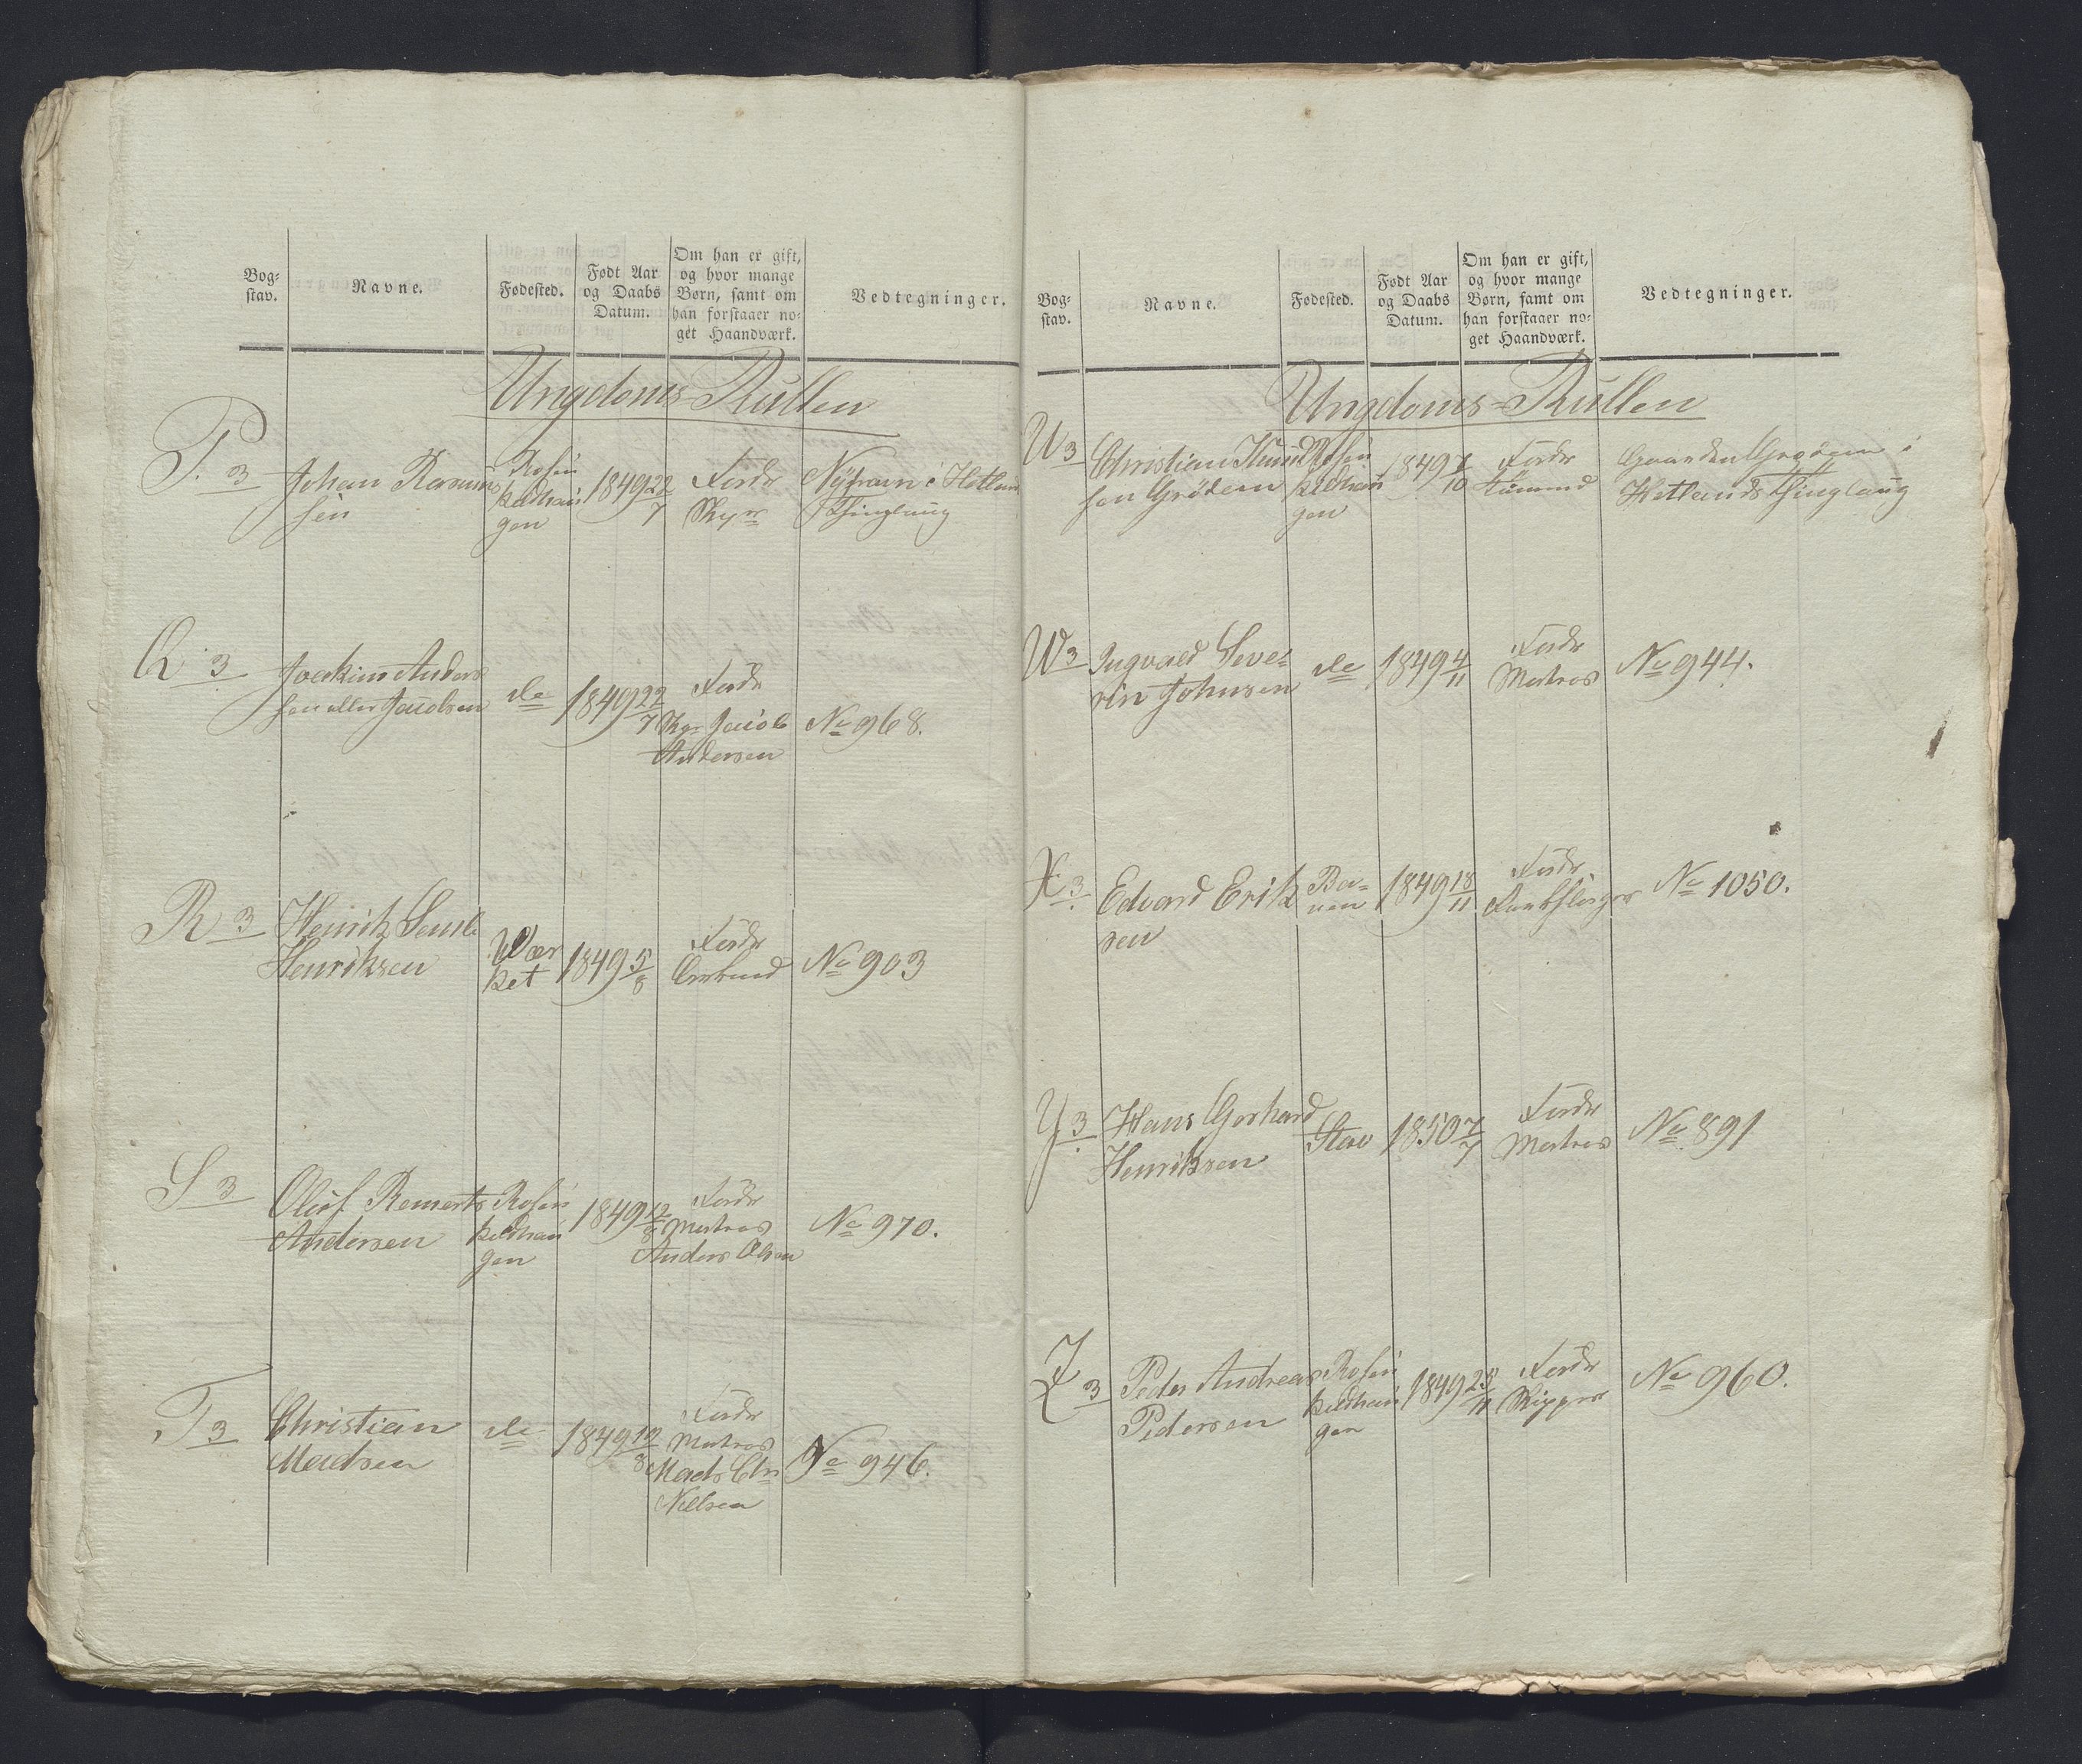 Bog-
stav.
Navne.
Fødested.
Født Aar
og Daabs
Datum.
Om han er gift,
og hvor mange
Børn, samt om
han forstaaer no-
get Haandværk.
Vedtegninger.
Ungdoms-Rullen
P. 3
Johan Rasmus
sen
Rosen
kildhau
gen
1849 22/7
Fader
Nyfram i Hetlan
Thinglaug
Q 3
Joackim Anders
sen eller Jacobsen
do
1849 22/7
Fader
Jacob
Andersen
No 968.
R 3
Henrik
Henriksen
Vær
ket
1849 5/8
Fader
No 903
S 3
Oluf Remerts
Andersen
Rosen
kildhau
gen
1849 12/8
Fader
Matros
Anders Olsen
No 970.
T 3
Christian
Madsen
do
1849 19/8
Fader
Matros
Mads Chr
Nielsen
No 946.
Bog-
stav.
Navne.
Fødested.
Født Aar
og Daabs
Datum.
Om han er gift,
og hvor mange
Børn, samt om
han forstaaer no-
get Haandværk.
Vedtegninger.
Ungdoms-Rullen
U 3
Christian Knud
sen Grødem
Rosen
kildhau
gen
1849 7/10
Fader
Gaarden Grødem i
Hetlands Thinglaug
W 3
Ingvald Seve-
rin Johnsen
do
1849 4/11
Fader
Matros
No 944.
X 3
Edvard Erik
sen
Ba-
nen
1849 18/11
Fader
No 1050.
Y. 3
Hans Gerhard
Henriksen
Stav
1850 7/7
Fader
Matros
No 891
Z 3
Peder Andreas
Pedersen
Rosen
kildhau
gen
1849 25/11
Fader
Skipper
No 960.